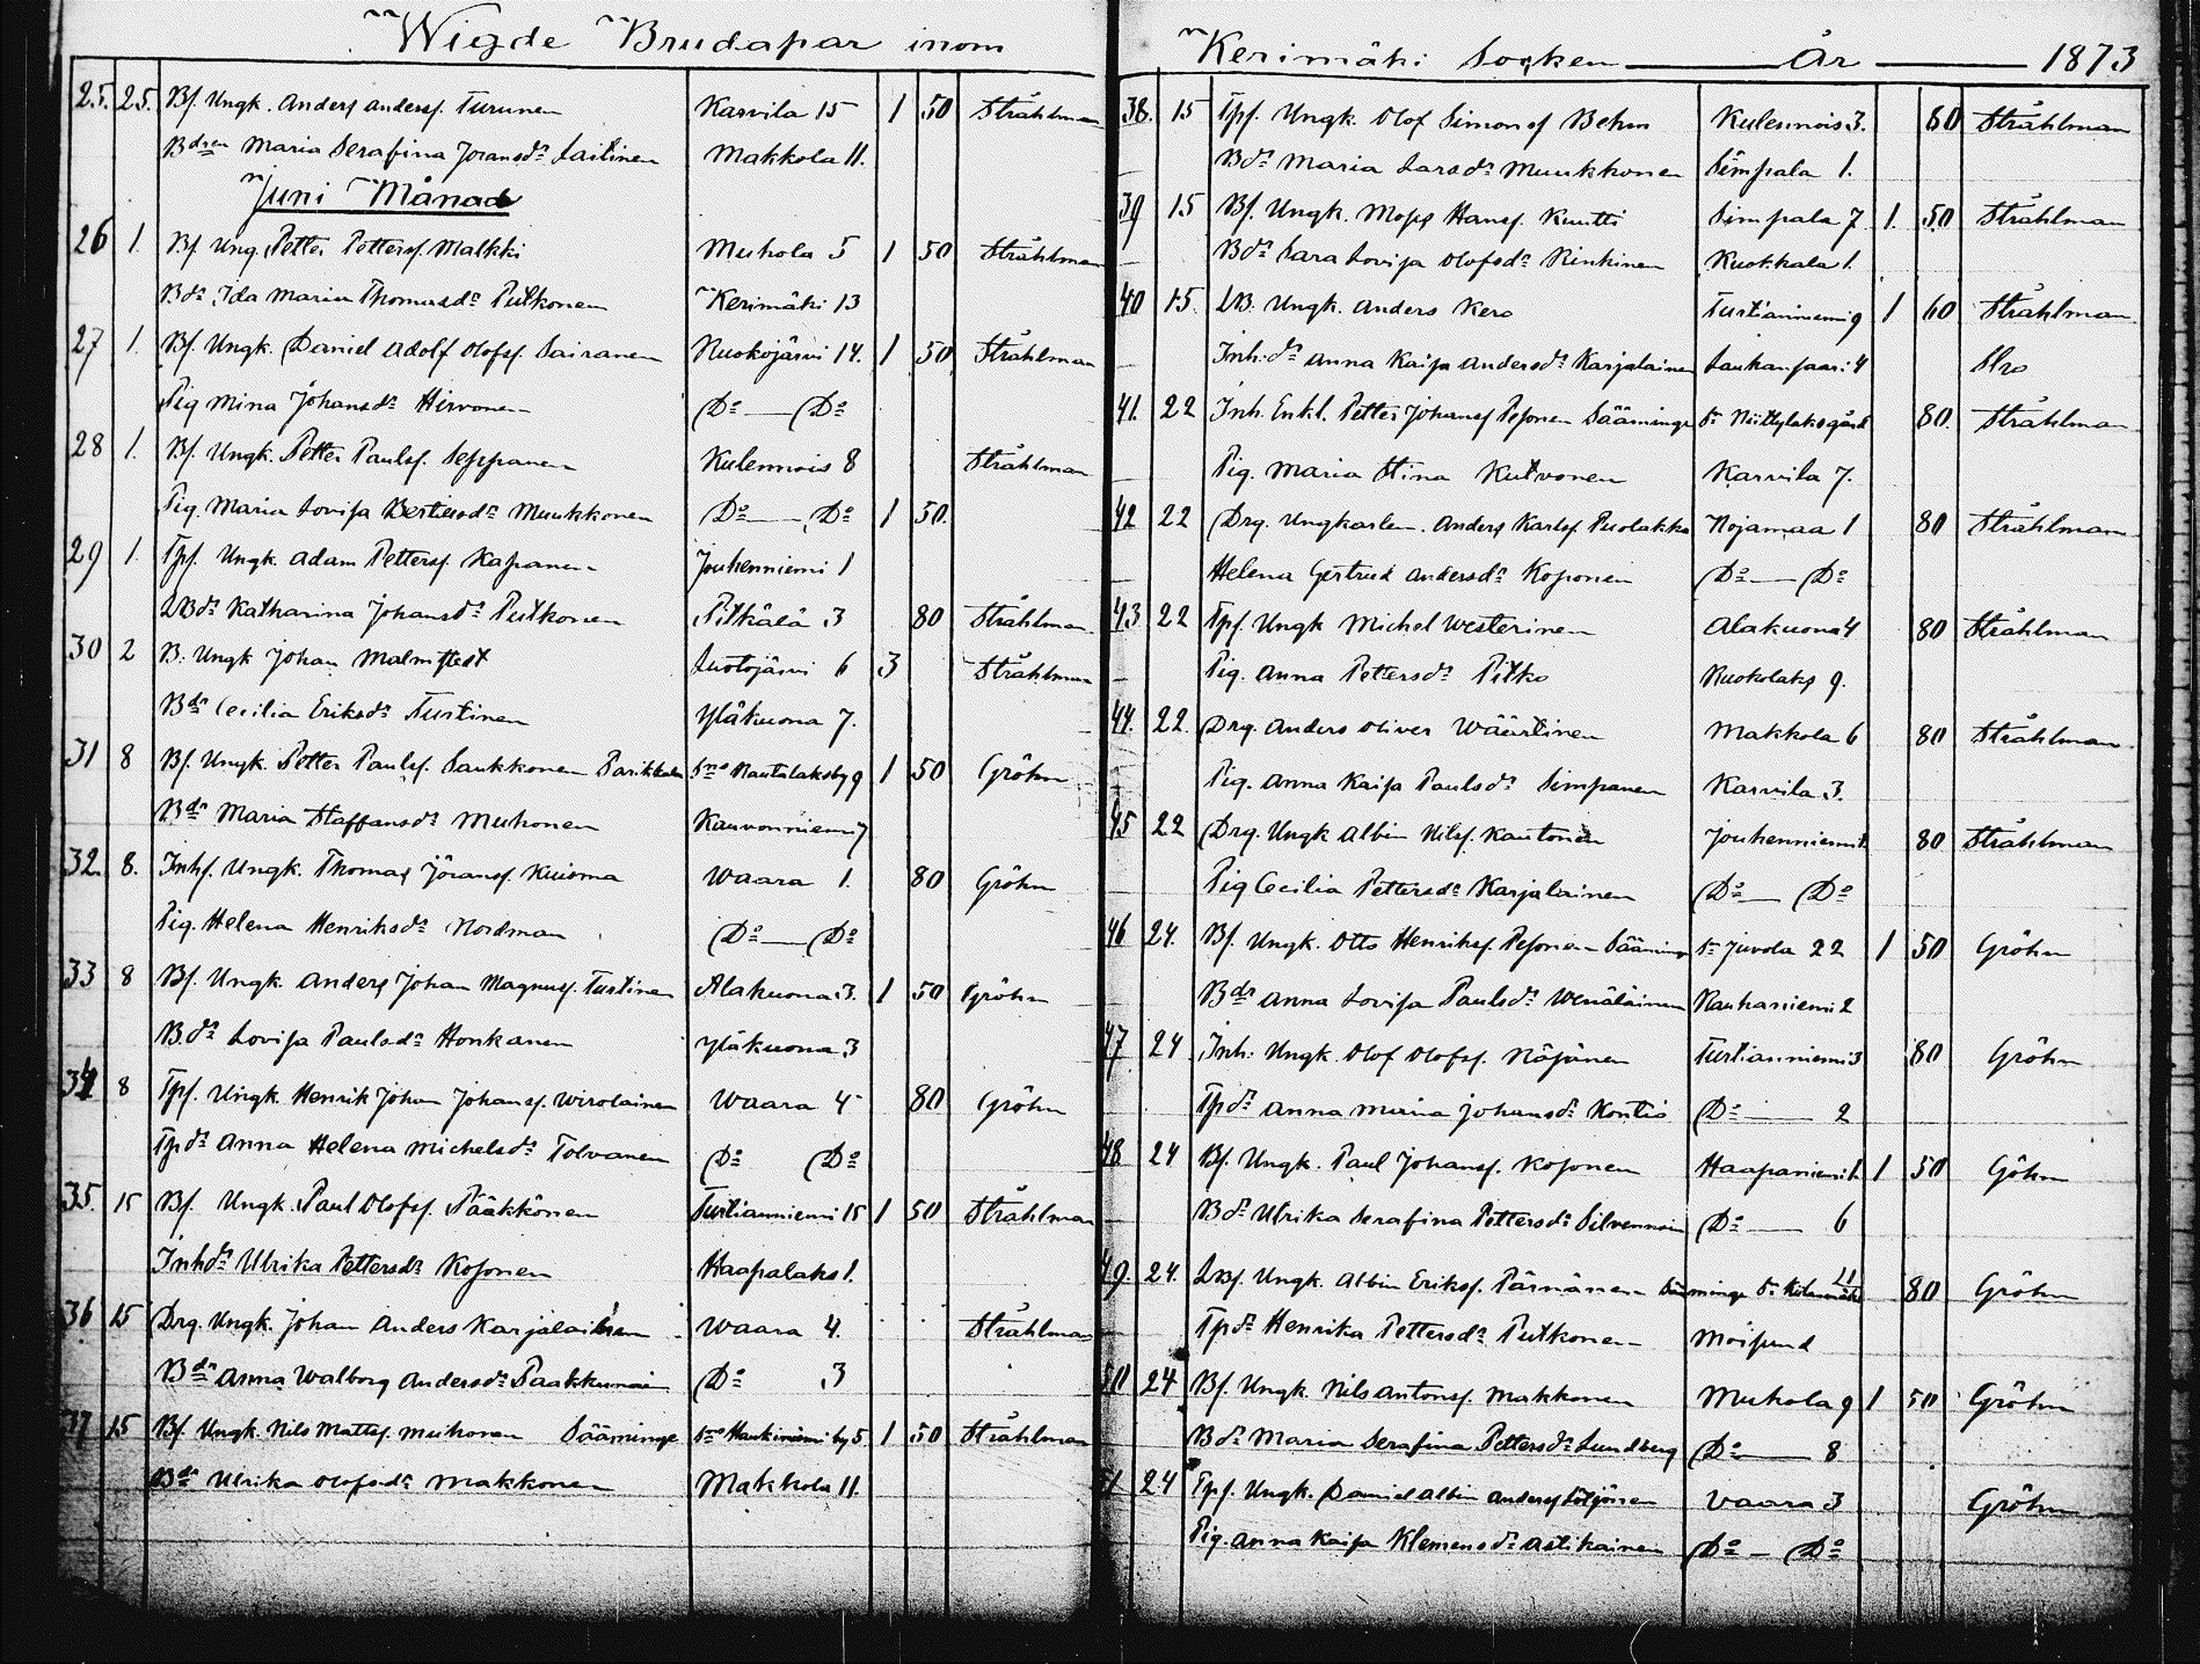 Wigde Brudapar inom
25. 25. Bf. Ungk. Anders Andersf. Turunen Karvila 15 1 50 Stråhlman
Bdren Maria Serafina Joransdr Laitinen Makkola 11.
Juni Månad
26 1. Bf. Ung. Petter Pettersf. Malkki Muhola 5 1 50 Stråhlman
Bdr Ida Maria Thomasdr Putkonen Kerimäki 13
27 1. Bf. Ungk. Daniel Adolf Olofsf. Sairanen Ruokojärvi 14. 1 50 Stråhlman
Pig Mina Johansdr Hirvonen Do — Do
28 1. Bf. Ungk. Petter Paulsf. Seppanen Kulennois 8 Stråhlman
Pig. Maria Lovisa Bertilsdr Muukkonen Do — Do 1 50.
29 1. Tpf. Ungk. Adam Pettersf. Kapanen Jouhenniemi 1
LBdr Katharina Johansdr Putkonen Pitkälä 3 80 Stråhlman
30 2 B. Ungk Johan Malmstedt Luotojärvi 6 3 Stråhlman
Bdr Cecilia Eriksdr Turtinen Yläkuona 7.
31 8 Bf. Ungk. Petter Paulsf. Saukkonen Parikkala Sns Rautalaksby 9 1 50 Gröhn
Bdr Maria Staffansdr Muhonen Kauvonniemi 7
32. 8. Inhf. Ungk. Thomas Jöransf. Kuisma Waara 1. 80 Gröhn
Pig. Helena Henriksdr Nordman Do — Do
33 8 Bf. Ungk. Anders Johan Magnusf. Turtinen Alakuona 3. 1 50 Gröhn
B.dr Lovisa Paulsdr Honkanen Yläkuona 3
34 8 Tpf. Ungk. Henrik Johan Johansf. Wirolainen Waara 4 80 Gröhn
Tpdr Anna Helena Michelsdr Tolvanen Do Do
35. 15 Bf. Ungk. Paul Olofsf. Pääkkönen Turtianniemi 15 1 50 Stråhlman
Inhdr Ulrika Pettersdr Kosonen Haapalaks 1.
36 15 Drg. Ungk. Johan Anders Karjalainen Waara 4. Stråhlman
Bdr Anna Walborg Andersdr Paakkunai Do 3
37 15 Bf. Ungk. Nils Mattsf. Muhonen Sääminge Sns Haukiniemi by 5 1 50 Stråhlman
Bdr Ulrika Olofsdr Makkonen Makkola 11.
Kerimäki Socken — År — 1873
38. 15 Tpf. Ungk. Olof Simonsf Behm Kulennois 3. 80 Stråhlman
Bdr Maria Larsdr Muukkonen Simpala 1.
39 15 Bf. Ungk. Moses Hansf. Kuutti Simpala 7 1. 50 Stråhlman
Bdr Sara Lovisa Olofsdr Rinkinen Kuokkala 1.
40 15. LB. Ungk. Anders Kero Turtianniemi 9 1 60 Stråhlman
Inh.dr Anna Kaisa Andersdr Karjalainen Laukansaari 4
41. 22 Inh. Enkl. Petter Johansf Pesonen Sääminge Sn Niittylaks gård 80. Stråhlman
Pig. Maria Stina Kutvonen Karvila 7.
42 22 Drg. Ungkarlen. Anders Karlsf. Puolakka Nojamaa 1 80 Stråhlman
Helena Gertrud Andersdr Koponen Do — Do
43 22 Tpf. Ungk Michel Westerinen Alakuona 4 80 Stråhlman
Pig. Anna Pettersdr Pitko Ruokolaks 9.
44. 22. Drg. Anders Oliver Wäärtinen Makkola 6 80 Stråhlman
Pig. Anna Kaisa Paulsdr Simpanen Karvila 3.
45 22 Drg. Ungk Albin Nilsf. Kautonen Jouhenniemi 80 Stråhlman
Pig Cecilia Pettersdr Karjalainen Do — Do
46 24. Bf. Ungk. Otto Henriksf. Pesonen Sääminge Sn Juvola 22 1 50 Gröhn
Bdr Anna Lovisa Paulsdr Wenäläinen Rauhaniemi 2
47 24 Inh. Ungk. Olof Olofsf. Nöjönen Turtianniemi 3 80 Gröhn
Tpdr Anna Maria Johansdr Kontio Do — 2
48 24 Bf. Ungk. Paul Johansf. Kosonen Haapaniemi 1. 1 50 Göhn
Bdr Ulrika Serafina Pettersdr Silvennoin Do — 6
49. 24. LBf. Ungk. Albin Eriksf. Pärnänen Sääminge Sn 80 Gröhn
Tpdr Henrika Pettersdr Putkonen Moisund
50 24 Bf. Ungk. Nils Antonsf. Makkonen Muhola 9 1 50 Gröhn
Bdr Maria Serafina Pettersdr Lundberg Do — 8
51 24 Tpf. Ungk. Daniel Albin Andersf Vaara 3 Gröhn
Pig. Anna Kaisa Klemensdr Astikainen Do — Do